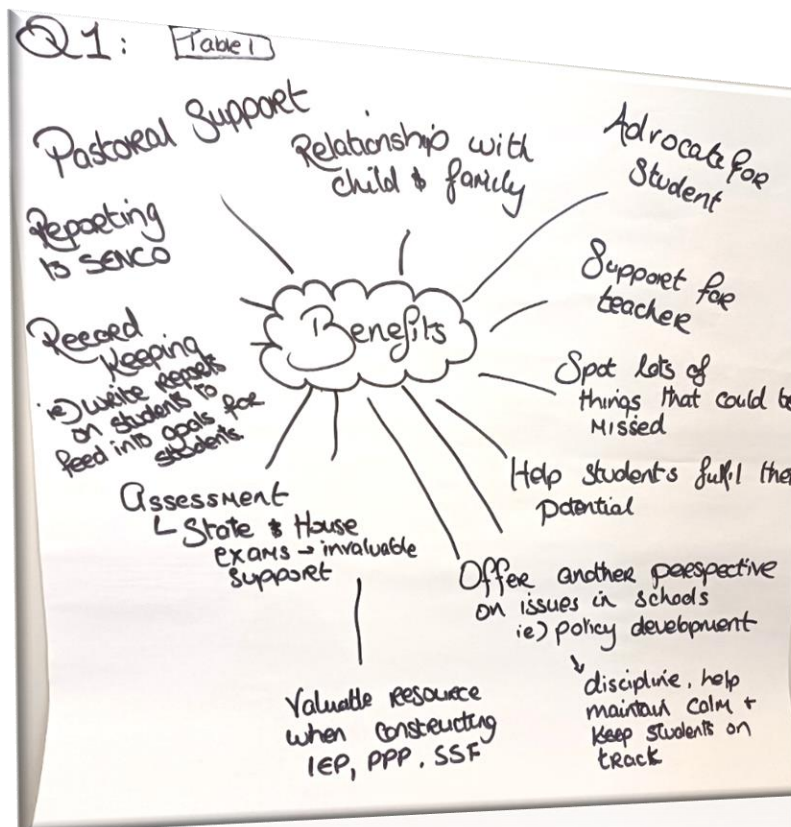 Q1: Table 1
Pastoral Support
Relationship with
child & family
Advocate for
Student
Reporting
to SENCO
Benefits
Support for
teacher
Record
Keeping
ie) Write Reports
on students to
feed into goals for
students
Spot lots of
things that could be
missed
Help students fulfil the
potential
Assessment
↳ State & House
exams → invaluable
support
Offer another perspective
on issues in schools
ie) policy development
↘ discipline, help
maintain calm +
keep students on
track
Valuable resource
when constructing
IEP, PPP, SSF